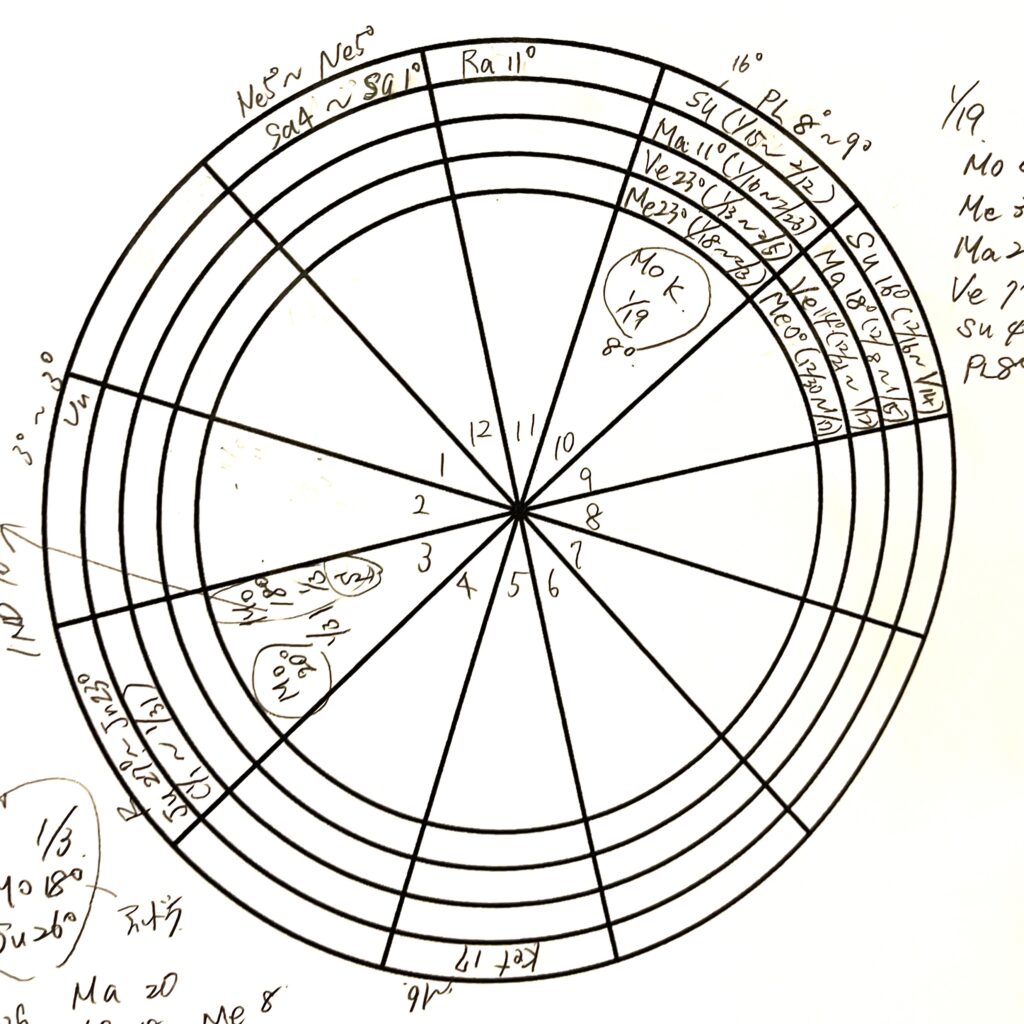 Ne5° ~ Ne5°
Sa4 ~ Sa1°
Ra 11°
16°
Ph 8° ~ 9°
Su (1/15 ~ 2/12)
Ma 11° (1/16 ~ 2/23)
Ve 23° (1/13 ~ 2/5)
Me 23° (1/18 ~ 2/3)
Mo K
1/19
8°
Su 16° (12/16 ~ 1/14)
Ma 18° (12/8 ~ 1/15)
Ve 14° (12/21 ~ 1/12)
Me 0° (12/30 ~ 1/17)
1/19
Mo
Me
Ma 2
Ve
Su
Ph 8
3° ~ 3°
Un
12
11
10
1
9
2
8
3
7
4
5
6
IND
Mo
18°
1/3
1/31
Mo
20°
R
Ju 27° ~ Ju 23°
(1/1 ~ 1/31)
1/3
Mo 18°
Ju 26°
Ma 20
Me 8
Ket 17
~16